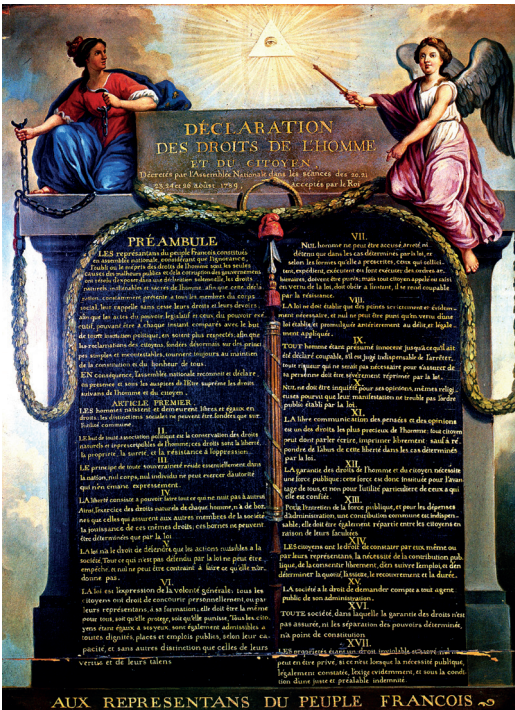 DÉCLARATION
DES DROITS DE L'HOMME
ET DU CITOYEN
Décretés par l'Assemblée Nationale dans les séances des 20, 21
23, 24 et 26 août 1789, acceptés par le Roi
PRÉAMBULE
LES représentans du peuple François, constitués
en assemblée nationale, considérant que l'ignorance,
l'oubli ou le mépris des droits de l'homme sont les seules
causes des malheurs publics et de la corruption des gouvernemens
ont résolu d'exposer dans une déclaration solemnelle, les droits
naturels, inaliénables et sacrés de l'homme, afin que cette décla-
ration, constamment présente a tous les membres du corps
social, leur rappelle sans cesse leurs droits et leurs devoirs;
afin que les actes du pouvoir législatif et ceux du pouvoir exé-
cutif, pouvant être a chaque instant comparés avec le but
de toute institution politique, en soient plus respectés; afin que
les réclamations des citoyens, fondées désormais sur des princi-
pes simples et incontestables, tournent toujours au maintien
de la constitution et du bonheur de tous.
EN conséquence, l'assemblée nationale reconnoit et déclare,
en présence et sous les auspices de l'Etre suprême les droits
suivans de l'homme et du citoyen.
ARTICLE PREMIER.
LES hommes naissent et demeurent libres et égaux en
droits. les distinctions sociales ne peuvent être fondées que sur
l'utilité commune.
II.
LE but de toute association politique est la conservation des droits
naturels et imprescriptibles de l'homme; ces droits sont la liberté,
la propriété, la sureté, et la résistance à l'oppression.
III.
LE principe de toute souveraineté réside essentiellement dans
la nation, nul corps, nul individu ne peut exercer d'autorité
qui n'en émane expressement.
IV.
LA liberté consiste a pouvoir faire tout ce qui ne nuit pas à autrui
Ainsi, l'exercice des droits naturels de chaque homme, n'a de bor-
nes que celles qui assurent aux autres membres de la société
la jouissance de ces mêmes droits; ces bornes ne peuvent
être déterminées que par la loi
V.
LA loi n'a le droit de défendre que les actions nuisibles à la
société. Tout ce qui n'est pas défendu par la loi ne peut être
empêché, et nul ne peut être contraint à faire ce qu'elle n'or-
donne pas.
VI.
LA loi est l'expression de la volonté générale; tous les
citoyens ont droit de concourir personnellement, ou par
leurs représentans, à sa formation; elle doit être la même
pour tous, soit qu'elle protege, soit qu'elle punisse. Tous les cito-
yens étant égaux à ses yeux, sont également admissibles a
toutes dignités, places et emplois publics, selon leur ca-
pacité, et sans autres distinction que celles de leurs
vertus et de leurs talens
VII.
NUL homme ne peut être accusé, arreté, ni
détenu que dans les cas déterminés par la loi, et
selon les formes qu'elle a prescrites, ceux qui sollici-
tent, expédient, exécutent ou font exécuter des ordres ar-
bitraires, doivent être punis; mais tout citoyen appelé ou saisi
en vertu de la loi, doit obéir a l'instant, il se rend coupable
par la résistance.
VIII.
LA loi ne doit établir que des peines strictement et évidem-
ment nécessaire, et nul ne peut être puni qu'en vertu d'une
loi établie et promulguée antérierement au délit, et légale-
ment appliquée.
IX.
TOUT homme étant présumé innocent jusqu'a ce qu'il ait
été déclaré coupable, s'il est jugé indispensable de l'arrêter,
toute rigueur qui ne serait pas nécessaire pour s'assurer de
sa personne doit être sévérement réprimée par la loi.
X.
NUL ne doit être inquiété pour ses opinions, mêmes religi-
euses pourvu que leur manifestation ne trouble pas l'ordre
public établi par la loi.
XI.
LA libre communication des pensées et des opinions
est un des droits les plus precieux de l'homme; tout citoyen
peut dont parler écrire, imprimer librement; sauf a ré-
pondre de l'abus de cette liberté dans les cas déterminés
par la loi.
XII.
LA garantie des droits de l'homme et du citoyen nécessite
une force publique; cette force est donc instituée pour l'avan-
tage de tous, et non pour l'utilité particuliere de ceux a qui
elle est confiée.
XIII.
Pour l'entretien de la force publique, et pour les dépenses
d'administration, une contribution commune est indispen-
sable; elle doit être également répartie entre les citoyens en
raison de leurs facultés
XIV.
LES citoyens ont le droit de constater par eux même ou
par leurs représentans, la nécessité de la contribution pub-
lique, de la consentir librement, d'en suivre l'emploi, et d'en
déterminer la quotité, l'assiette, le recouvrement et la durée.
XV.
LA société a le droit de demander compte a tout agent
public de son administration.
XVI.
TOUTE société, dans laquelle la garantie des droits n'est
pas assurée, ni les séparation des pouvoirs déterminée,
n'a point de constitution
XVII.
LES propriétés étant un droit inviolable et sacré, nul ne
peut en être privé, si ce n'est lorsque la nécessité publique,
légalement constatée, l'exige évidemment, et sous la condi-
tion d'une juste et préalable indemnité.
AUX REPRESENTANS DU PEUPLE FRANCOIS